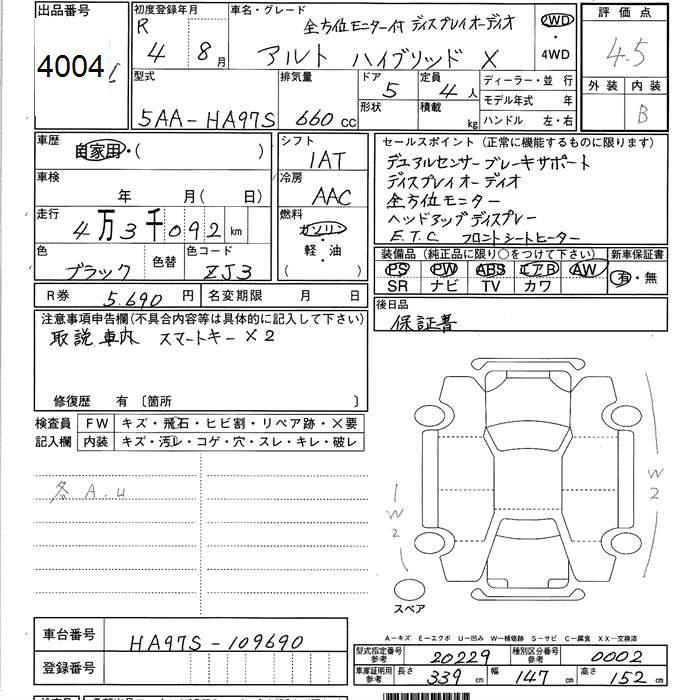 出品番号
4004
初度登録年月
R 4 年 8 月
車名・グレード
全方位モニター付 ディスプレイオーディオ
アルト ハイブリッド X
2WD
・
4WD
評価点
4.5
外装 内装
B
型式
5AA-HA97S
排気量
660 cc
ドア
5
形状
定員
4人
積載
kg
ディーラー・並行
モデル年式 年
ハンドル 左・右
車歴
自家用・( )
車検
年 月( 日)
走行
4万3千092km
色
ブラック
色替
色コード
ZJ3
シフト
IAT
冷房
AAC
燃料
ガソリン
軽・油
( )
セールスポイント (正常に機能するものに限ります)
デュアルセンサーブレーキサポート
ディスプレイオーディオ
全方位モニター
ヘッドアップディスプレー
E.T.C フロントシートヒーター
装備品(純正品に限り○をつけて下さい)
PS PW ABS エアB AW
SR ナビ TV カワ
新車保証書
有・無
R券 5.690 円
名変期限 月 日
後日品
保証書
注意事項申告欄(不具合内容等は具体的に記入して下さい)
取説車内 スマートキー×2
修復歴 有〔箇所 〕
検査員
記入欄
FW キズ・飛石・ヒビ割・リペア跡・×要
内装 キズ・汚レ・コゲ・穴・スレ・キレ・破レ
各 A.u
W2
W2
スペア
車台番号
HA97S-109690
登録番号
A―キズ E―エクボ U―凹み W―補修跡 S―サビ C―腐食 XX―交換済
型式指定番号
参考
20229
種別区分番号
参考
0002
車庫証明用
参考
長さ 339 cm
幅 147 cm
高さ 152 cm